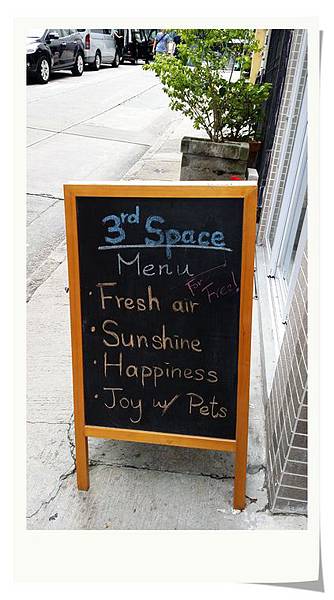 3rd Space
Menu
For Free!
· Fresh air
· Sunshine
· Happiness
· Joy w/ Pets